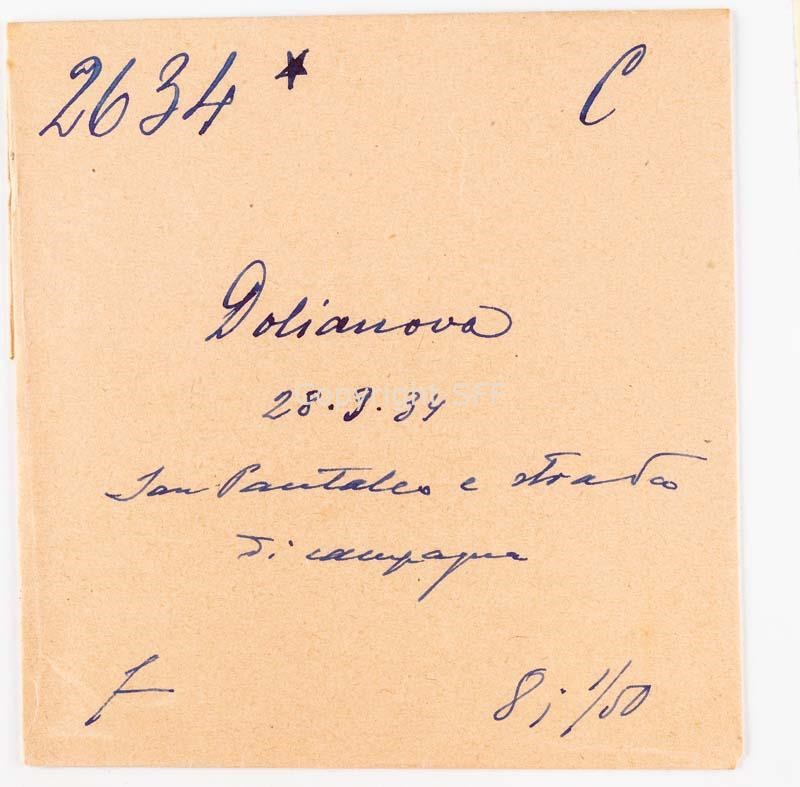 2634 * C
Dolianova
28.9.34
Copyright SFF
San Pantaleo e strada
di campagna
F
8; 1/50